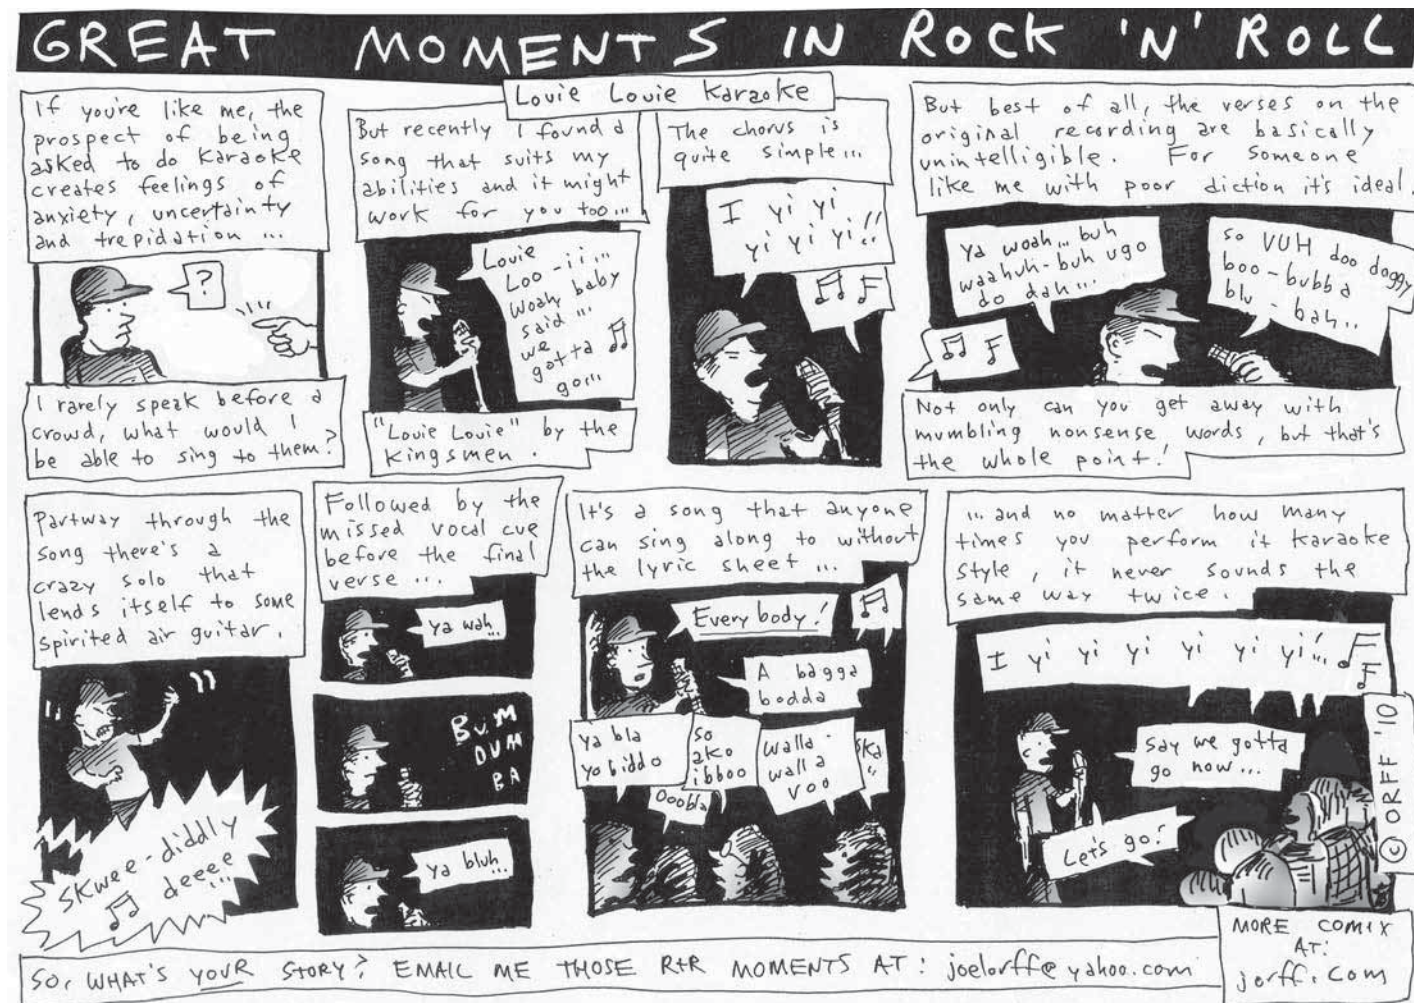 GREAT MOMENTS IN ROCK 'N' ROLL
Louie Louie Karaoke
If you're like me, the
prospect of being
asked to do karaoke
creates feelings of
anxiety, uncertainty
and trepidation ...
?
I rarely speak before a
crowd, what would I
be able to sing to them?
But recently I found a
song that suits my
abilities and it might
work for you too...
Louie
Loo-ii...
Woah, baby
said ...
we
gotta
go...
"Louie Louie" by the
Kingsmen.
The chorus is
quite simple...
I yi yi
yi yi yi!!
But best of all, the verses on the
original recording are basically
unintelligible. For someone
like me with poor diction it's ideal.
Ya woah... buh
waahuh-buh ugo
do dah...
So VUH doo doggy
boo-bubba
blu-bah...
Not only can you get away with
mumbling nonsense words, but that's
the whole point!
Partway through the
song there's a
crazy solo that
lends itself to some
spirited air guitar.
SKwee-diddly
deeee...
Followed by the
missed vocal cue
before the final
verse ...
Ya wah...
BUM
DUM
BA
Ya bluh...
It's a song that anyone
can sing along to without
the lyric sheet ...
Every body!
A bagga
bodda
Ya bla
yo biddo
Ooobla
So
ako
ibboo
Walla-
walla
voo
Ska
... and no matter how many
times you perform it karaoke
style, it never sounds the
same way twice.
I yi yi yi yi yi!...
Say we gotta
go now...
Let's go!
© ORFF '10
SO, WHAT'S YOUR STORY? EMAIL ME THOSE R+R MOMENTS AT: joelorff@yahoo.com
MORE COMIX
AT:
jorff.com